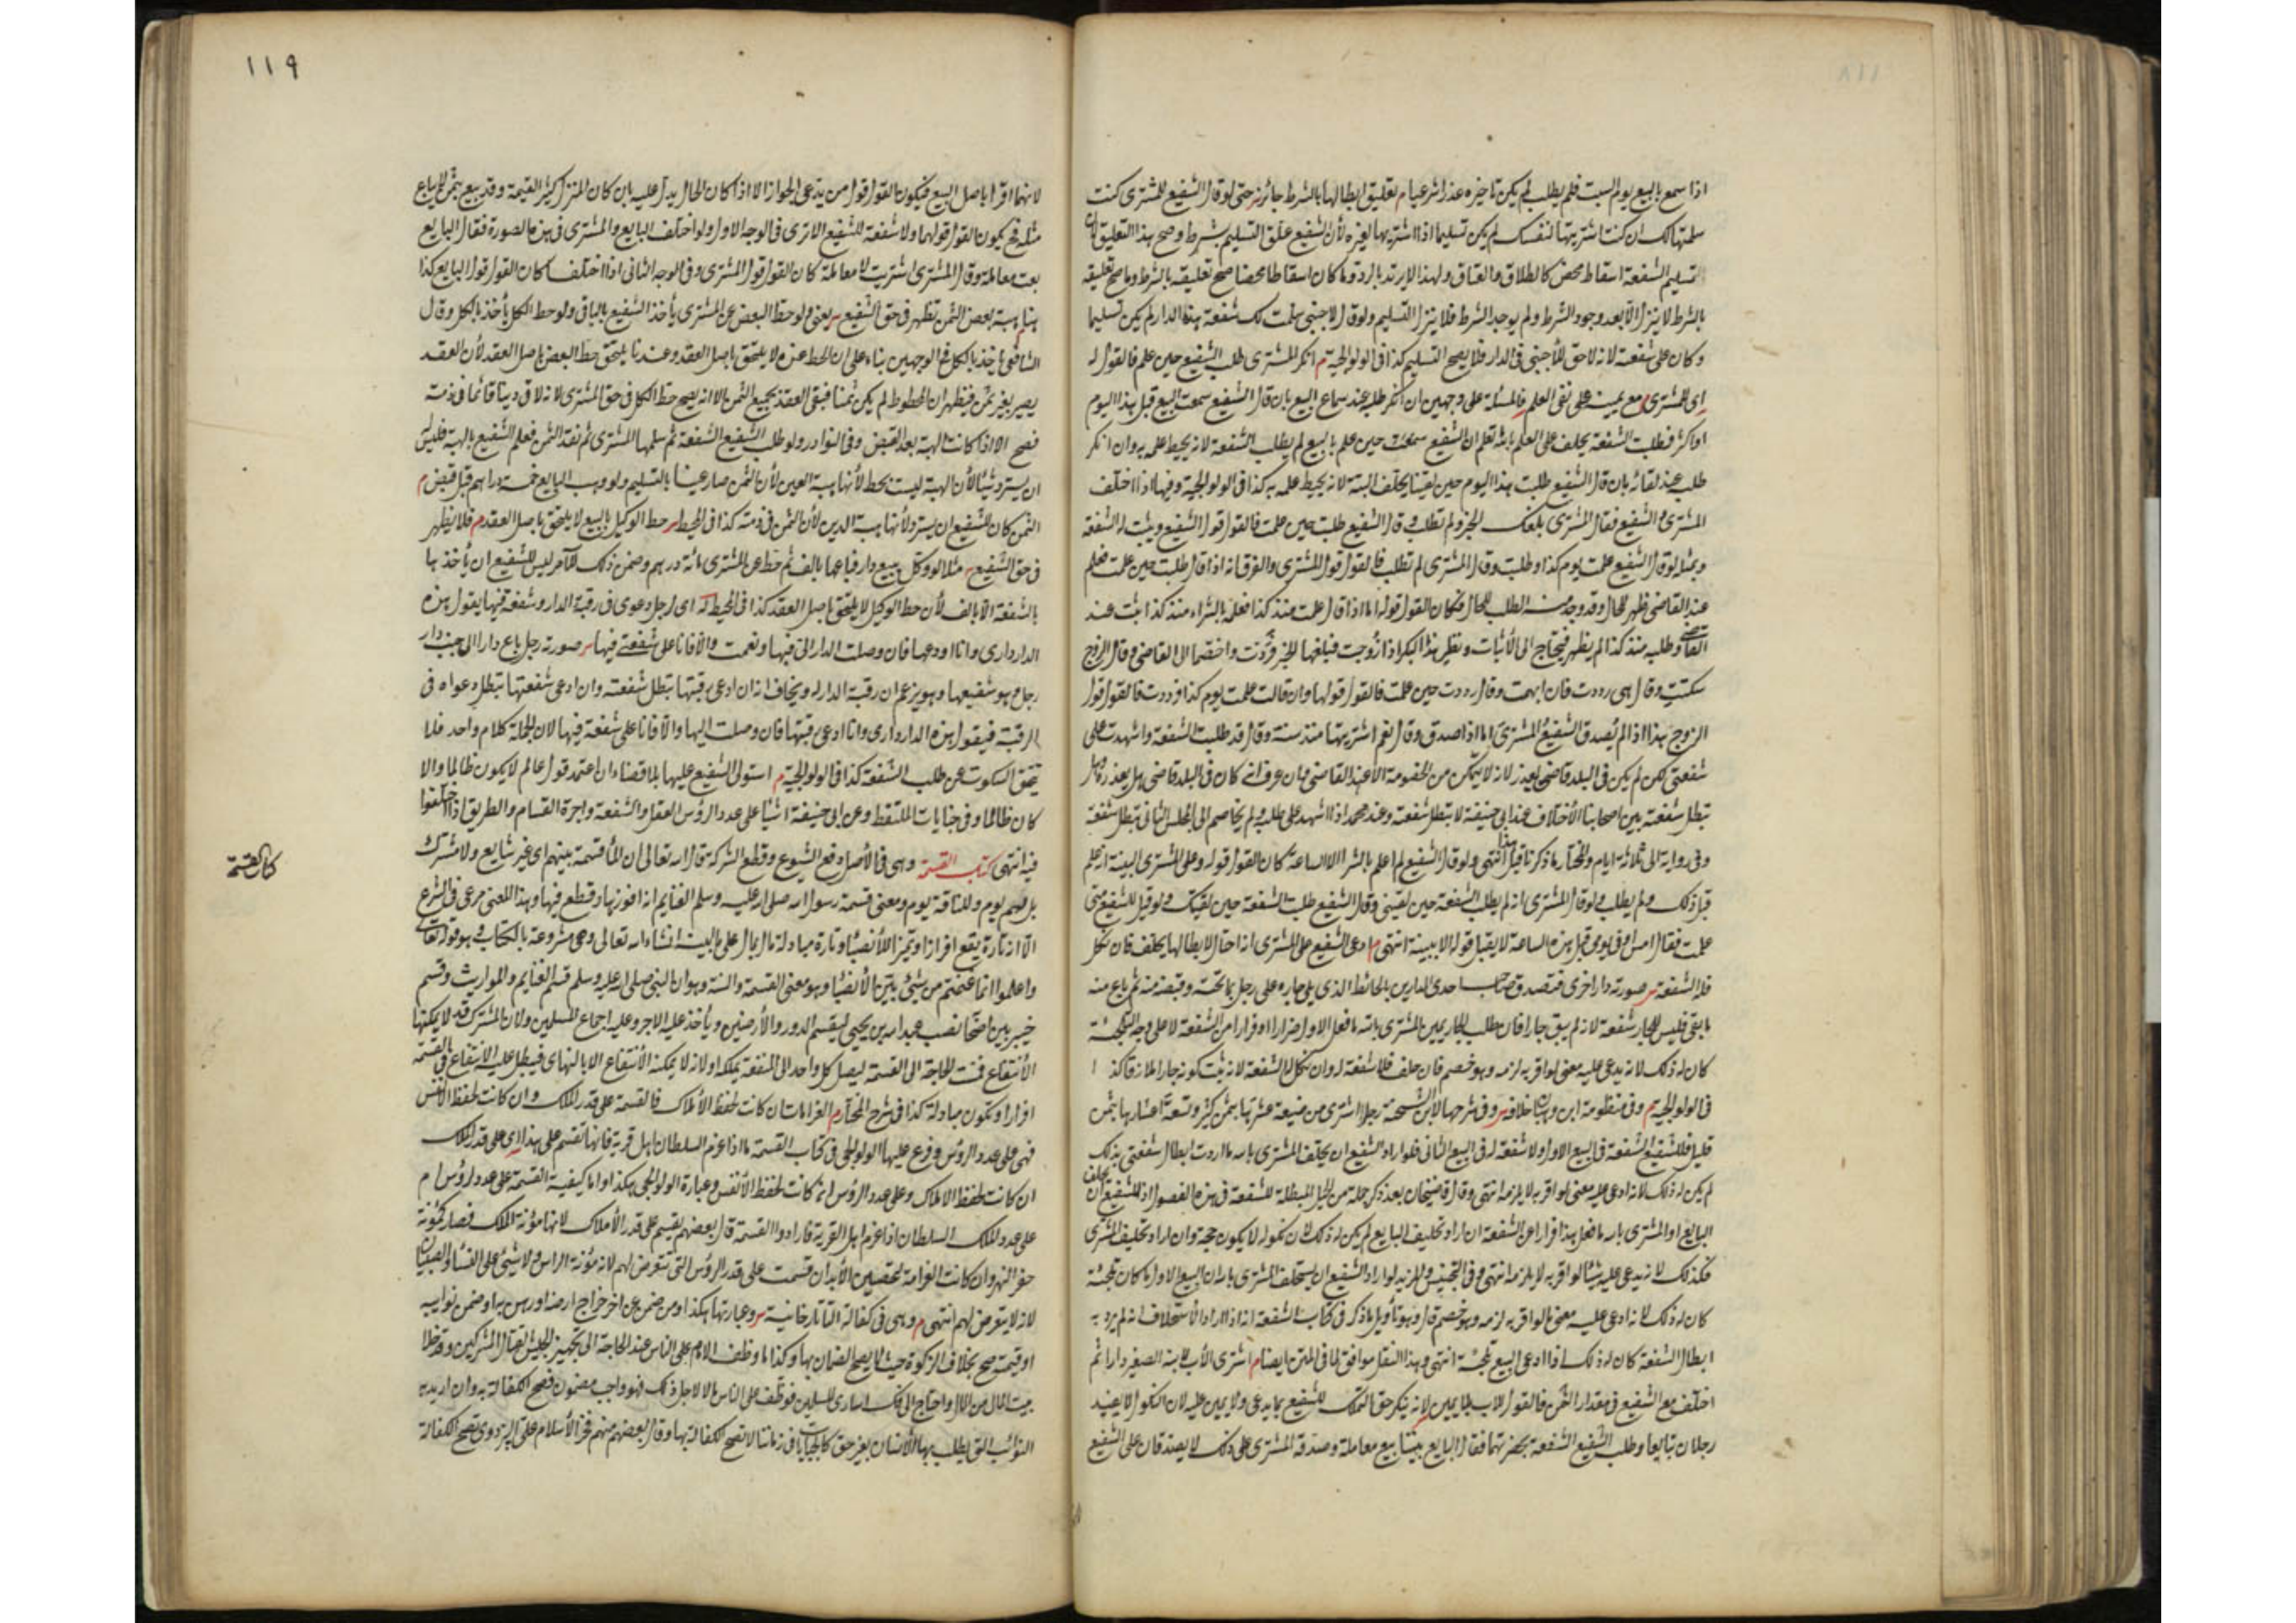 اذا سمع بالبيع يوم السبت فلم يطلب لم يكن تاخيره عذرا شرعيا م تعليق ابطالها بالشرط جائز حتى لو قال الشفيع للمشترى كنت
سلمتها لك ان كنت اشتريتها لنفسك لم يكن تسليما اذا اشتريها لغيره لأن الشفيع علق التسليم بشرط وصح هذا التعليق لأن
تسليم الشفعة اسقاط محض كالطلاق والعتاق ولهذا لا يرتد بالرد وما كان اسقاطا محضا صح تعليقه بالشرط وما صح تعليقه
بالشرط لا ينزل الا بعد وجود الشرط ولم يوجد الشرط فلا ينزل التسليم ولو قال لاجنبى سلمت لك شفعة هذه الدار لم يكن تسليما
وكان على شفعته لانه لا حق للأجنبى فى الدار فلا يصح التسليم كذا فى الولوالجية م انكر المشترى طلب الشفيع حين علم فالقول له
اى للمشترى مع يمينه على نفى العلم فالمسئلة على وجهين ان انكر طلبه عند سماع البيع بان قال الشفيع سمعت البيع قبل هذا اليوم
او اكثر فطلبت الشفعة يحلف على العلم بالله تعلم ان الشفيع حين علم بالبيع لم يطلب الشفعة لانه يحيط علمه به وان انكر
طلبه عند لقائه بان قال الشفيع طلبت هذا اليوم حين لقينا يحلف البتة لانه يحيط علمه به كذا فى الولوالجية وفيها اذا اختلف
المشترى والشفيع فقال المشترى بلغك الخبر ولم تطلب وقال الشفيع طلبت حين علمت فالقول قول الشفيع ويثبت له الشفعة
وبمثله لو قال الشفيع علمت يوم كذا وطلبت وقال المشترى لم تطلب فالقول قول المشترى والفرق انه اذا قال طلبت حين علمت فعلم
عند القاضى ظهر للحال وقد وجد منه الطلب للحال فكان القول قوله اما اذا قال علمت منذ كذا فعلمه بالشراء منذ كذا ثبت عند
القاضى وطلبه منذ كذا لم يظهر فيحتاج الى الاثبات ونظير هذا البكر اذا زوجت فبلغها الخبر فردت واختصما الى القاضى وقال الزوج
سكتت وقال هى رددت فان ابهمت وقال رددت حين علمت فالقول قولها وان قالت علمت يوم كذا ورددت فالقول قول
الزوج هذا اذا لم يصدق الشفيع المشترى اما اذا صدق وقال نعم اشتريتها منذ سنة وقال قد طلبت الشفعة واشهدت على
شفعتى لكن لم يكن فى البلد قاضى يعذر لانه لا يتمكن من الخصومة الا عند القاضى وان عرف انه كان فى البلد قاضى هل يعذر وهل
تبطل شفعته بين اصحابنا الاختلاف عند ابى حنيفة لا تبطل شفعته وعند محمد اذا اشهد على طلبه ولم يخاصم الى المجلس الثانى تبطل شفعته
وفى رواية الى ثلاثة ايام والمختار ما ذكرنا قبل هذا انتهى ولو قال الشفيع لم اعلم بالشرا الا الساعة كان القول قوله وعلى المشترى البينة انه علم
قبل ذلك ولم يطلب ولو قال المشترى انه لم يطلب الشفعة حين لقينى وقال الشفيع طلبت الشفعة حين لقيتك ولو قيل للشفيع متى
علمت فقال امس او فى يومى قبل هذه الساعة لا يقبل قوله الا ببينة انتهى م ادعى الشفيع على المشترى انه احتال لابطالها يحلف فان نكل
فله الشفعة صورته دار اخرى فتصدق صاحب احدى الدارين بالحائط الذى يلى جاره على رجل بما تحته وقبضه منه ثم باع منه
ما بقى فليس للجار شفعة لانه لم يبق جارا فان طلب الجار يمين المشترى بالله ما فعل الاول ضرارا او فرارا من الشفعة لا على وجه التلجئة
كان له ذلك لانه يدعى عليه معنى لو اقر به لزمه وهو خصم فان حلف فلا شفعة له وان نكل له الشفعة لانه يثبت كونه جارا ملازقا كذا
فى الولوالجية م وفى منظومة ابن وهبان خلافه وفى شرحها لابن الشحنة رجل اشترى من ضيعة عشرتها بثمن كثير وتسعة اعشارها بثمن
قليل فللشفيع الشفعة فى البيع الاول ولا شفعة له فى البيع الثانى فلو اراد الشفيع ان يحلف المشترى بالله ما اردت ابطال شفعتى بذلك
لم يكن له ذلك لانه ادعى عليه معنى لو اقر به لا يلزمه انتهى وقال قاضيخان بعد ذكر جملة من الحيل المبطلة للشفعة فى هذه الفصول اذا للشفيع ان يحلف
البايع او المشترى بالله ما فعل هذا فرارا عن الشفعة ان اراد تحليف البايع لم يكن له ذلك لان نكوله لا يكون حجة وان اراد تحليف المشترى
فكذلك لانه يدعى عليه شيئا لو اقر به لا يلزمه انتهى وفى التجنيس والمزيد لو اراد الشفيع ان يستحلف المشترى بالله ان البيع الاول ما كان تلجئة
كان له ذلك لانه ادعى عليه معنى لو اقر به لزمه وهو خصم قال وهو تأويل ما ذكر فى كتاب الشفعة انه اذا اراد الاستحلاف انه لم يرد به
ابطال الشفعة كان له ذلك اذا ادعى البيع تلجئة انتهى وهذا النقل موافق لما فى المتن ايضا م اشترى الأب لابنه الصغير دارا ثم
اختلف مع الشفيع فى مقدار الثمن فالقول للاب بلا يمين لانه ينكر حق التملك للشفيع بما يدعى ولا يمين عليه لان النكول لا يفيد
رجلان تبايعا وطلب الشفيع الشفعة بحضرتهما فقال البايع بيننا بيع معاملة وصدقه المشترى على ذلك لا يصدقان على الشفيع
١١٩
لانهما اقرا باصل البيع فيكون القول قول من يدعى الجواز الا اذا كان الحال يدل عليه بان كان المنزل كثير القيمة وقد بيع بثمن لا يباع
مثله فح يكون القول قولهما ولا شفعة للشفيع الا ترى فى الوجه الاول ولو اختلف البايع والمشترى فى هذه الصورة فقال البايع
بعت معاملة وقال المشترى اشتريت لا معاملة كان القول قول المشترى وفى الوجه الثانى اذا اختلفا كان القول قول البايع كذا
هنا م هبة بعض الثمن تظهر فى حق الشفيع يعنى لو حط البعض عن المشترى يأخذ الشفيع بالباقى ولو حط الكل يأخذ بالكل وقال
الشافعى يأخذ بالكل فى الوجهين بناء على ان الحط عنده لا يلتحق باصل العقد وعندنا يلتحق حط البعض باصل العقد لأن العقد
يصير بغير ثمن فيظهر ان المحطوط لم يكن ثمنا فبقى العقد بجميع الثمن الا انه يصح حط الكل فى حق المشترى لانه لاقى دينا قائما فى ذمته
فصح الا اذا كانت الهبة بعد القبض وفى النوادر ولو طلب الشفيع الشفعة ثم سلمها المشترى ثم نقد الثمن فعلم الشفيع بالهبة فليس له
ان يسترد شيئا لأن الهبة ليست بحط لأنها هبة العين لأن الثمن صار عينا بالتسليم ولو وهب البايع خمسة دراهم قبل قبض م
الثمن كان للشفيع ان يسترد لأنها هبة الدين لأن الثمن فى ذمته كذا فى المحيط حط الوكيل بالبيع لا يلتحق باصل العقد م فلا يظهر
فى حق الشفيع مثلا لو وكل ببيع دار فباعها بالف ثم حط عن المشترى مائة درهم وضمن ذلك للآمر ليس للشفيع ان يأخذ بها
بالشفعة الا بالف لأن حط الوكيل لا يلتحق باصل العقد كذا فى المحيط له اى لرجل دعوى فى رقبة الدار وشفعة فيها يقول هذه
الدار دارى وانا ادعيها فان وصلت الدار الى فبها ونعمت والا فانا على شفعتى فيها صورته رجل باع دارا الى جنب دار
رجل وهو شفيعها وهو يزعم ان رقبة الدار له ويخاف انه ان ادعى رقبتها تبطل شفعته وان ادعى شفعتها تبطل دعواه فى
الرقبة فيقول هذه الدار دارى وانا ادعى رقبتها فان وصلت اليها والا فانا على شفعة فيها لان الجملة كلام واحد فلا
يتحقق السكوت عن طلب الشفعة كذا فى الولوالجية م استولى الشفيع عليها بلا قضاء ان اعتمد قول عالم لا يكون ظالما والا
كان ظالما وفى جنايات الملتقط وعن ابى حنيفة اشيا على عدد الرؤس العقل والشفعة واجرة القسام والطريق اذا اختلفوا
فيه انتهى كتاب القسمة وهى فى الأصل رفع الشيوع وقطع الشركة قال الله تعالى ان الماء قسمة بينهم اى غير شايع ولا مشترك
بل لهم يوم وللناقة يوم ومعنى قسمة رسول الله صلى الله عليه وسلم الغنايم انه افرزها وقطع فيها وهذا المعنى مرعى فى الشرع
الا انه تارة يقع افرازا وتميزا للأنصبا وتارة مبادلة مال بمال على ما نبينه انشاء الله تعالى وهى مشروعة بالكتاب وهو قوله تعالى
واعلموا انما غنمتم من شيئ بيّن الأنصبا وهو معنى القسمة والسنة وهو ان النبى صلى الله عليه وسلم قسم الغنايم والمواريث وقسم
خيبر بين اصحابه نصب عبد الله بن يحيى ليقسم الدور والأرضين ويأخذ عليه الاجر وعليه اجماع المسلمين ولان المشترك قد لا يمكنها
الأنتفاع فمست الحاجة الى القسمة ليصل كل واحد الى المنفعة بملكه او لانه لا يمكنه الأنتفاع الا بالتهاى فيبطل عليه الانتفاع فى القسمة
افرازا وتكون مبادلة كذا فى شرح المختار م الغرامات ان كانت لحفظ الأملاك فالقسمة على قدر الملك وان كانت لحفظ الأنفس
فهى على عدد الرؤس وفرع عليها الولوالجى فى كتاب القسمة ما اذا غرم السلطان اهل قرية فانها تقسم على هذا اى على قدر الملك
ان كانت لحفظ الاملاك وعلى عدد الرؤس ان كانت لحفظ الأنفس وعبارة الولوالجى هكذا واما كيفية القسمة على عدد الرؤس ام
على عدد الملك السلطان اذا غرم اهل القرية فارادوا القسمة قال بعضهم يقسم على قدر الأملاك لانها مؤنة الملك فصار كمؤنة
حفر النهر وان كانت الغرامة لتحصين الأبدان قسمت على قدر الرؤس التى تتعرض لهم لانه مؤنة الراس ولا شيئ على النسا والصبيان
لانه لا يتعرض لهم انتهى م وهى فى كفالة التاتارخانية وعبارتها هكذا ومن ضمن عن اخر خراج ارضه او رهن به او ضمن نوايبه
او قيمته صح بخلاف الزكوة حيث لا يصح الضمان بها وكذا ما وظف الامام على الناس عند الحاجة الى تجهيز الجيش لقتال المشركين وقد خلا
بيت المال من المال واحتاج الى فك اسارى المسلمين فوظف على الناس مالا لاجل ذلك فهو واجب مضمون فصح الكفالة به وان اريد به
النوائب التى يطلب بها الأنسان بغير حق كالجبايات فى زماننا لا تصح الكفالة بها وقال بعضهم منهم فخر الأسلام على البزدوى تصح الكفالة
كتاب القسمة